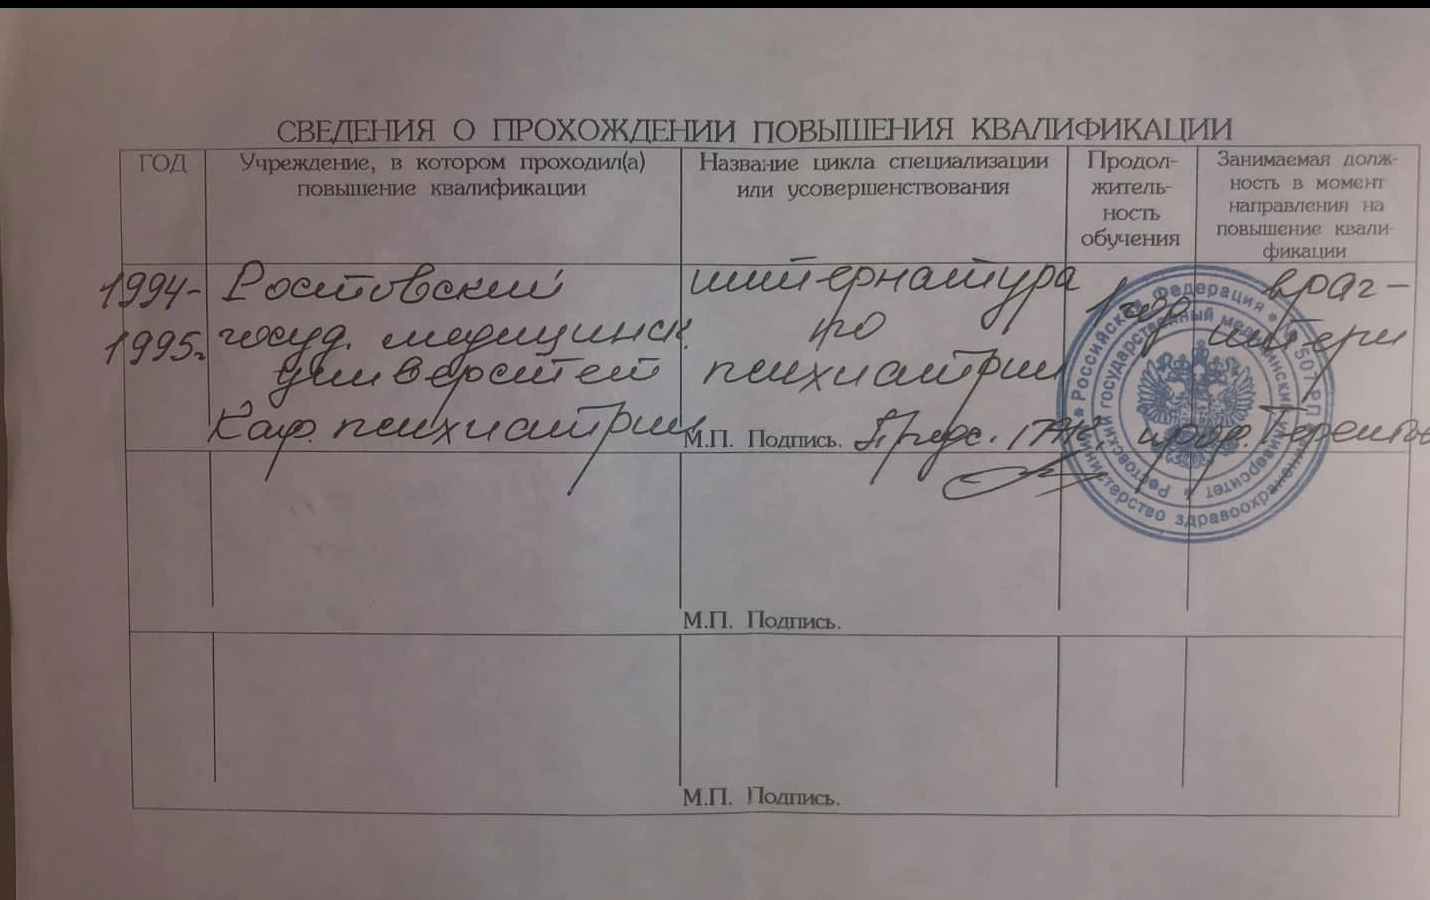 СВЕДЕНИЯ О ПРОХОЖДЕНИИ ПОВЫШЕНИЯ КВАЛИФИКАЦИИ
ГОД
Учреждение, в котором проходил(а)
повышение квалификации
Название цикла специализации
или усовершенствования
Продол-
житель-
ность
обучения
Занимаемая долж-
ность в момент
направления на
повышение квали-
фикации
1994-
1995г.
Ростовский
госуд. медицинск.
университет
Каф. психиатрии
интернатура
по
психиатрии
1 год
врач-
интерн
М.П. Подпись. Предс. проф. Терентьев
Российская Федерация
Министерство здравоохранения
Ростовский государственный медицинский университет
М.П. Подпись.
М.П. Подпись.